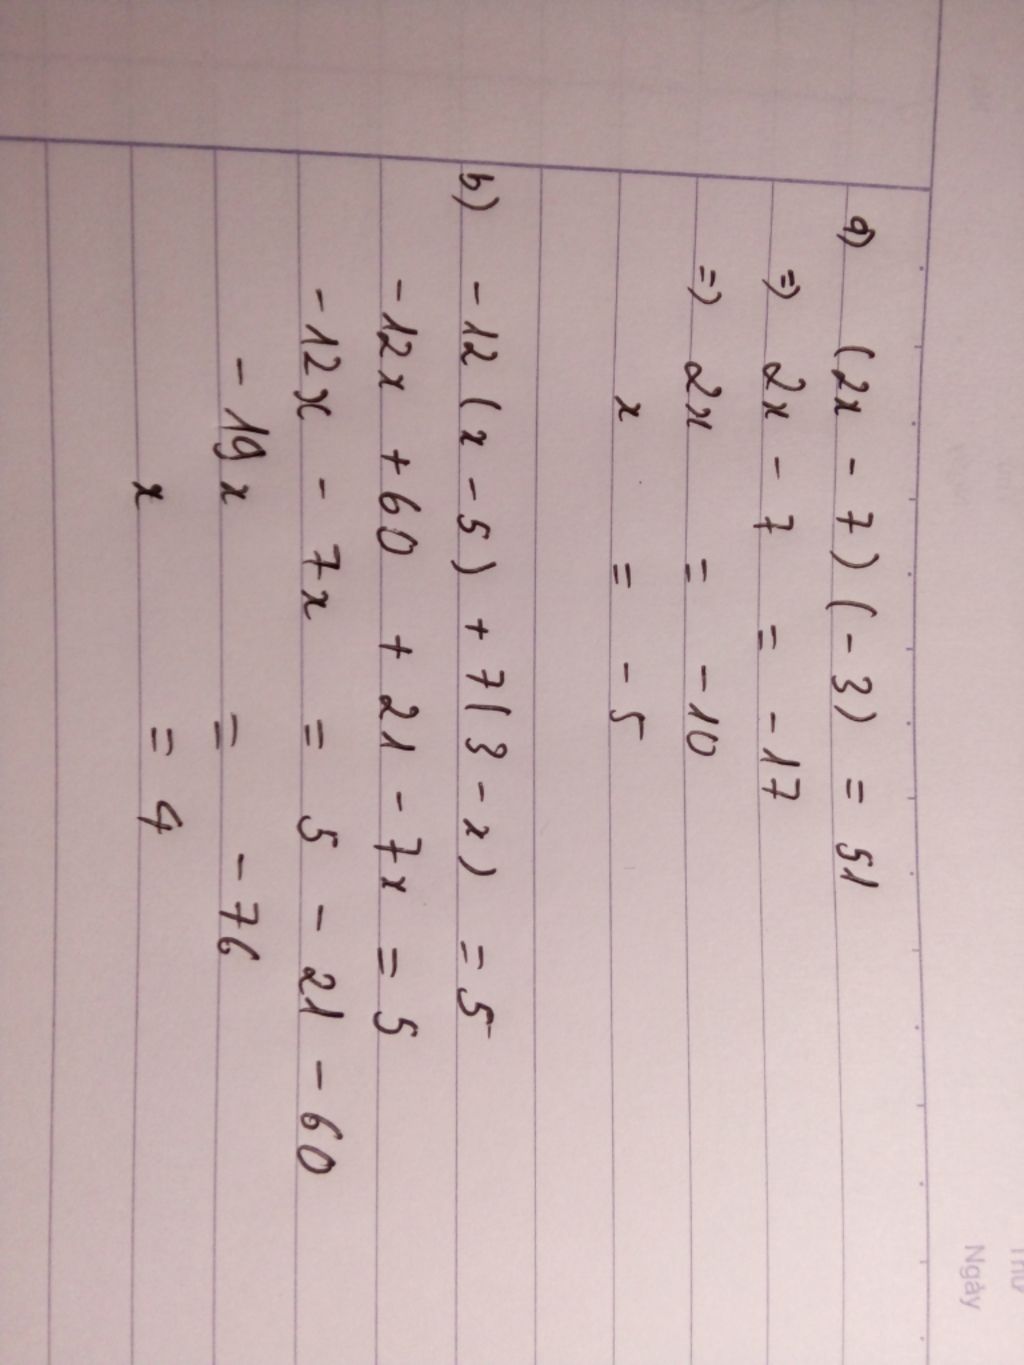 a) (2x - 7)(-3) = 51
=) 2x - 7 = -17
=) 2x = -10
x = -5
b) -12(x - 5) + 7(3 - x) = 5
-12x + 60 + 21 - 7x = 5
-12x - 7x = 5 - 21 - 60
-19x = -76
x = 4
Thứ
Ngày